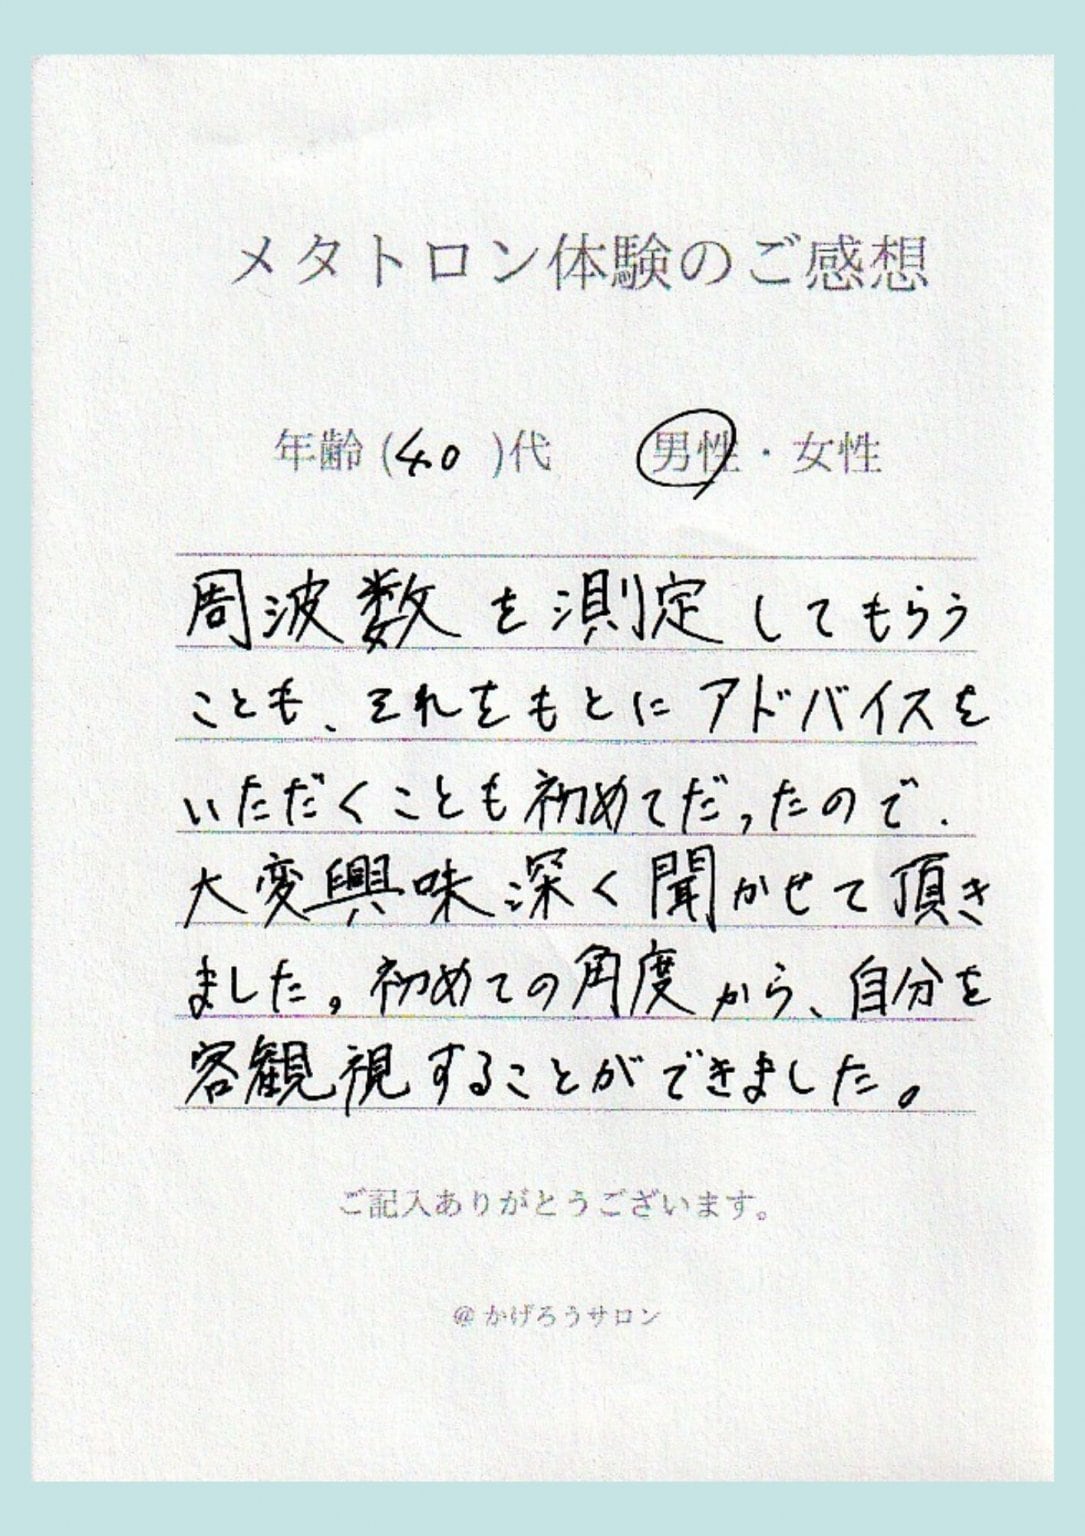 メタトロン体験のご感想
年齢(40)代 男性・女性
周波数を測定してもらう
ことも、それをもとにアドバイスを
いただくことも初めてだったので、
大変興味深く聞かせて頂き
ました。初めての角度から、自分を
客観視することができました。
ご記入ありがとうございます。
@かげろうサロン